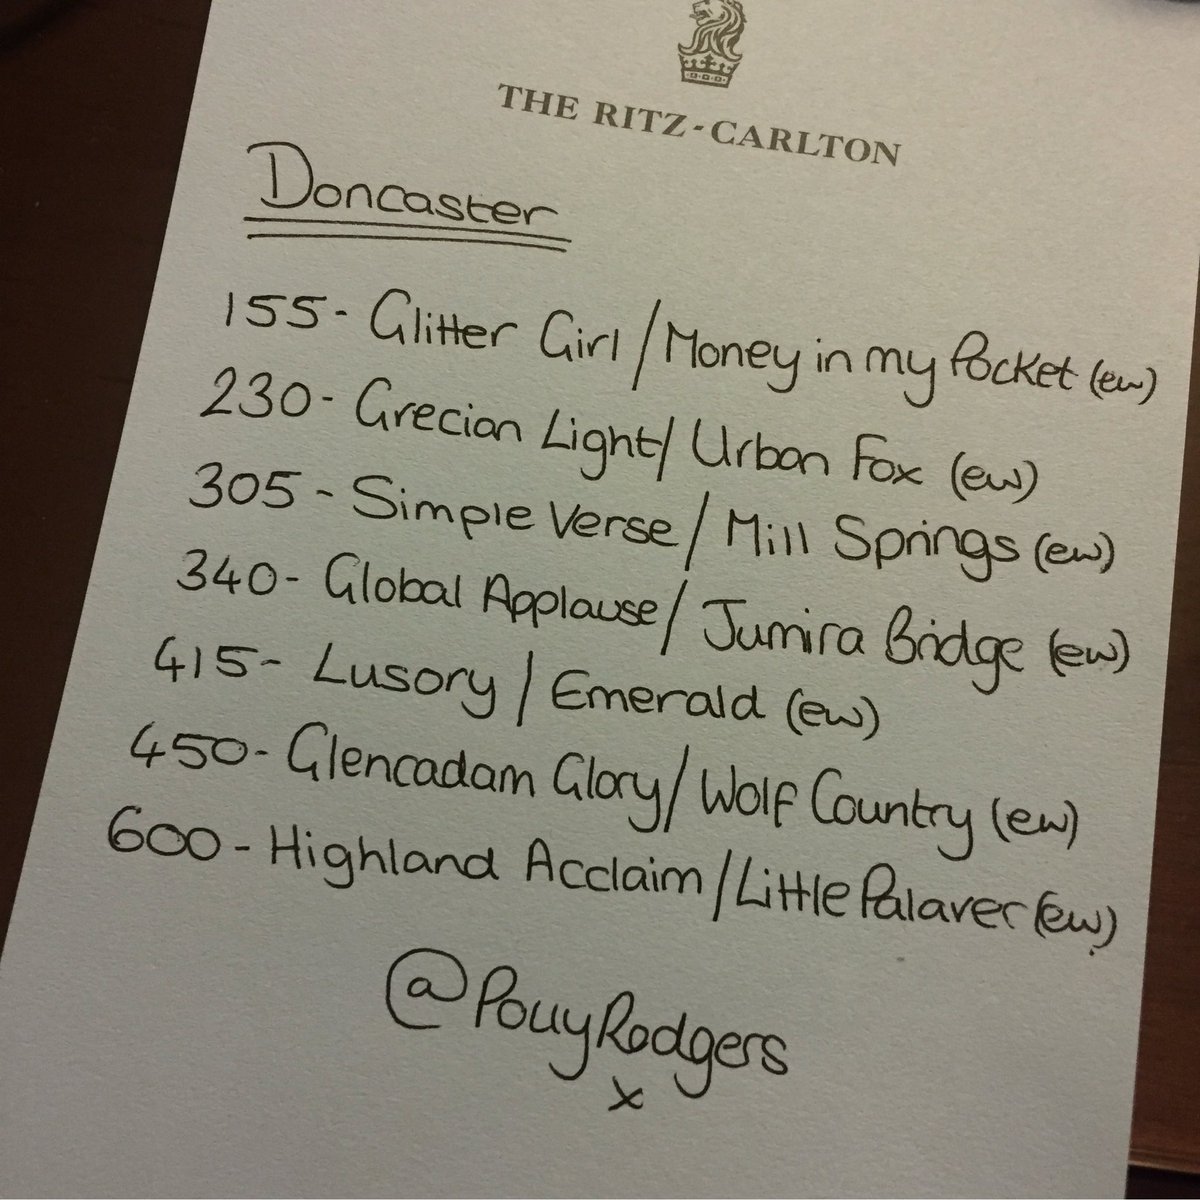 THE RITZ-CARLTON
Doncaster
155- Glitter Girl / Money in my Pocket (ew)
230- Grecian Light / Urban Fox (ew)
305 - Simple Verse / Mill Springs (ew)
340- Global Applause / Jumira Bridge (ew)
415- Lusory / Emerald (ew)
450- Glencadam Glory / Wolf Country (ew)
600 - Highland Acclaim / Little Palaver (ew)
@PollyRodgers
x